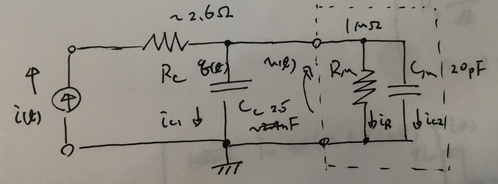 ~2.6Ω
1MΩ
Rc
q(t)
v(t)
Rin
Cin
20pF
i(t)
ic1
Cc 25
nF
iR
ic2